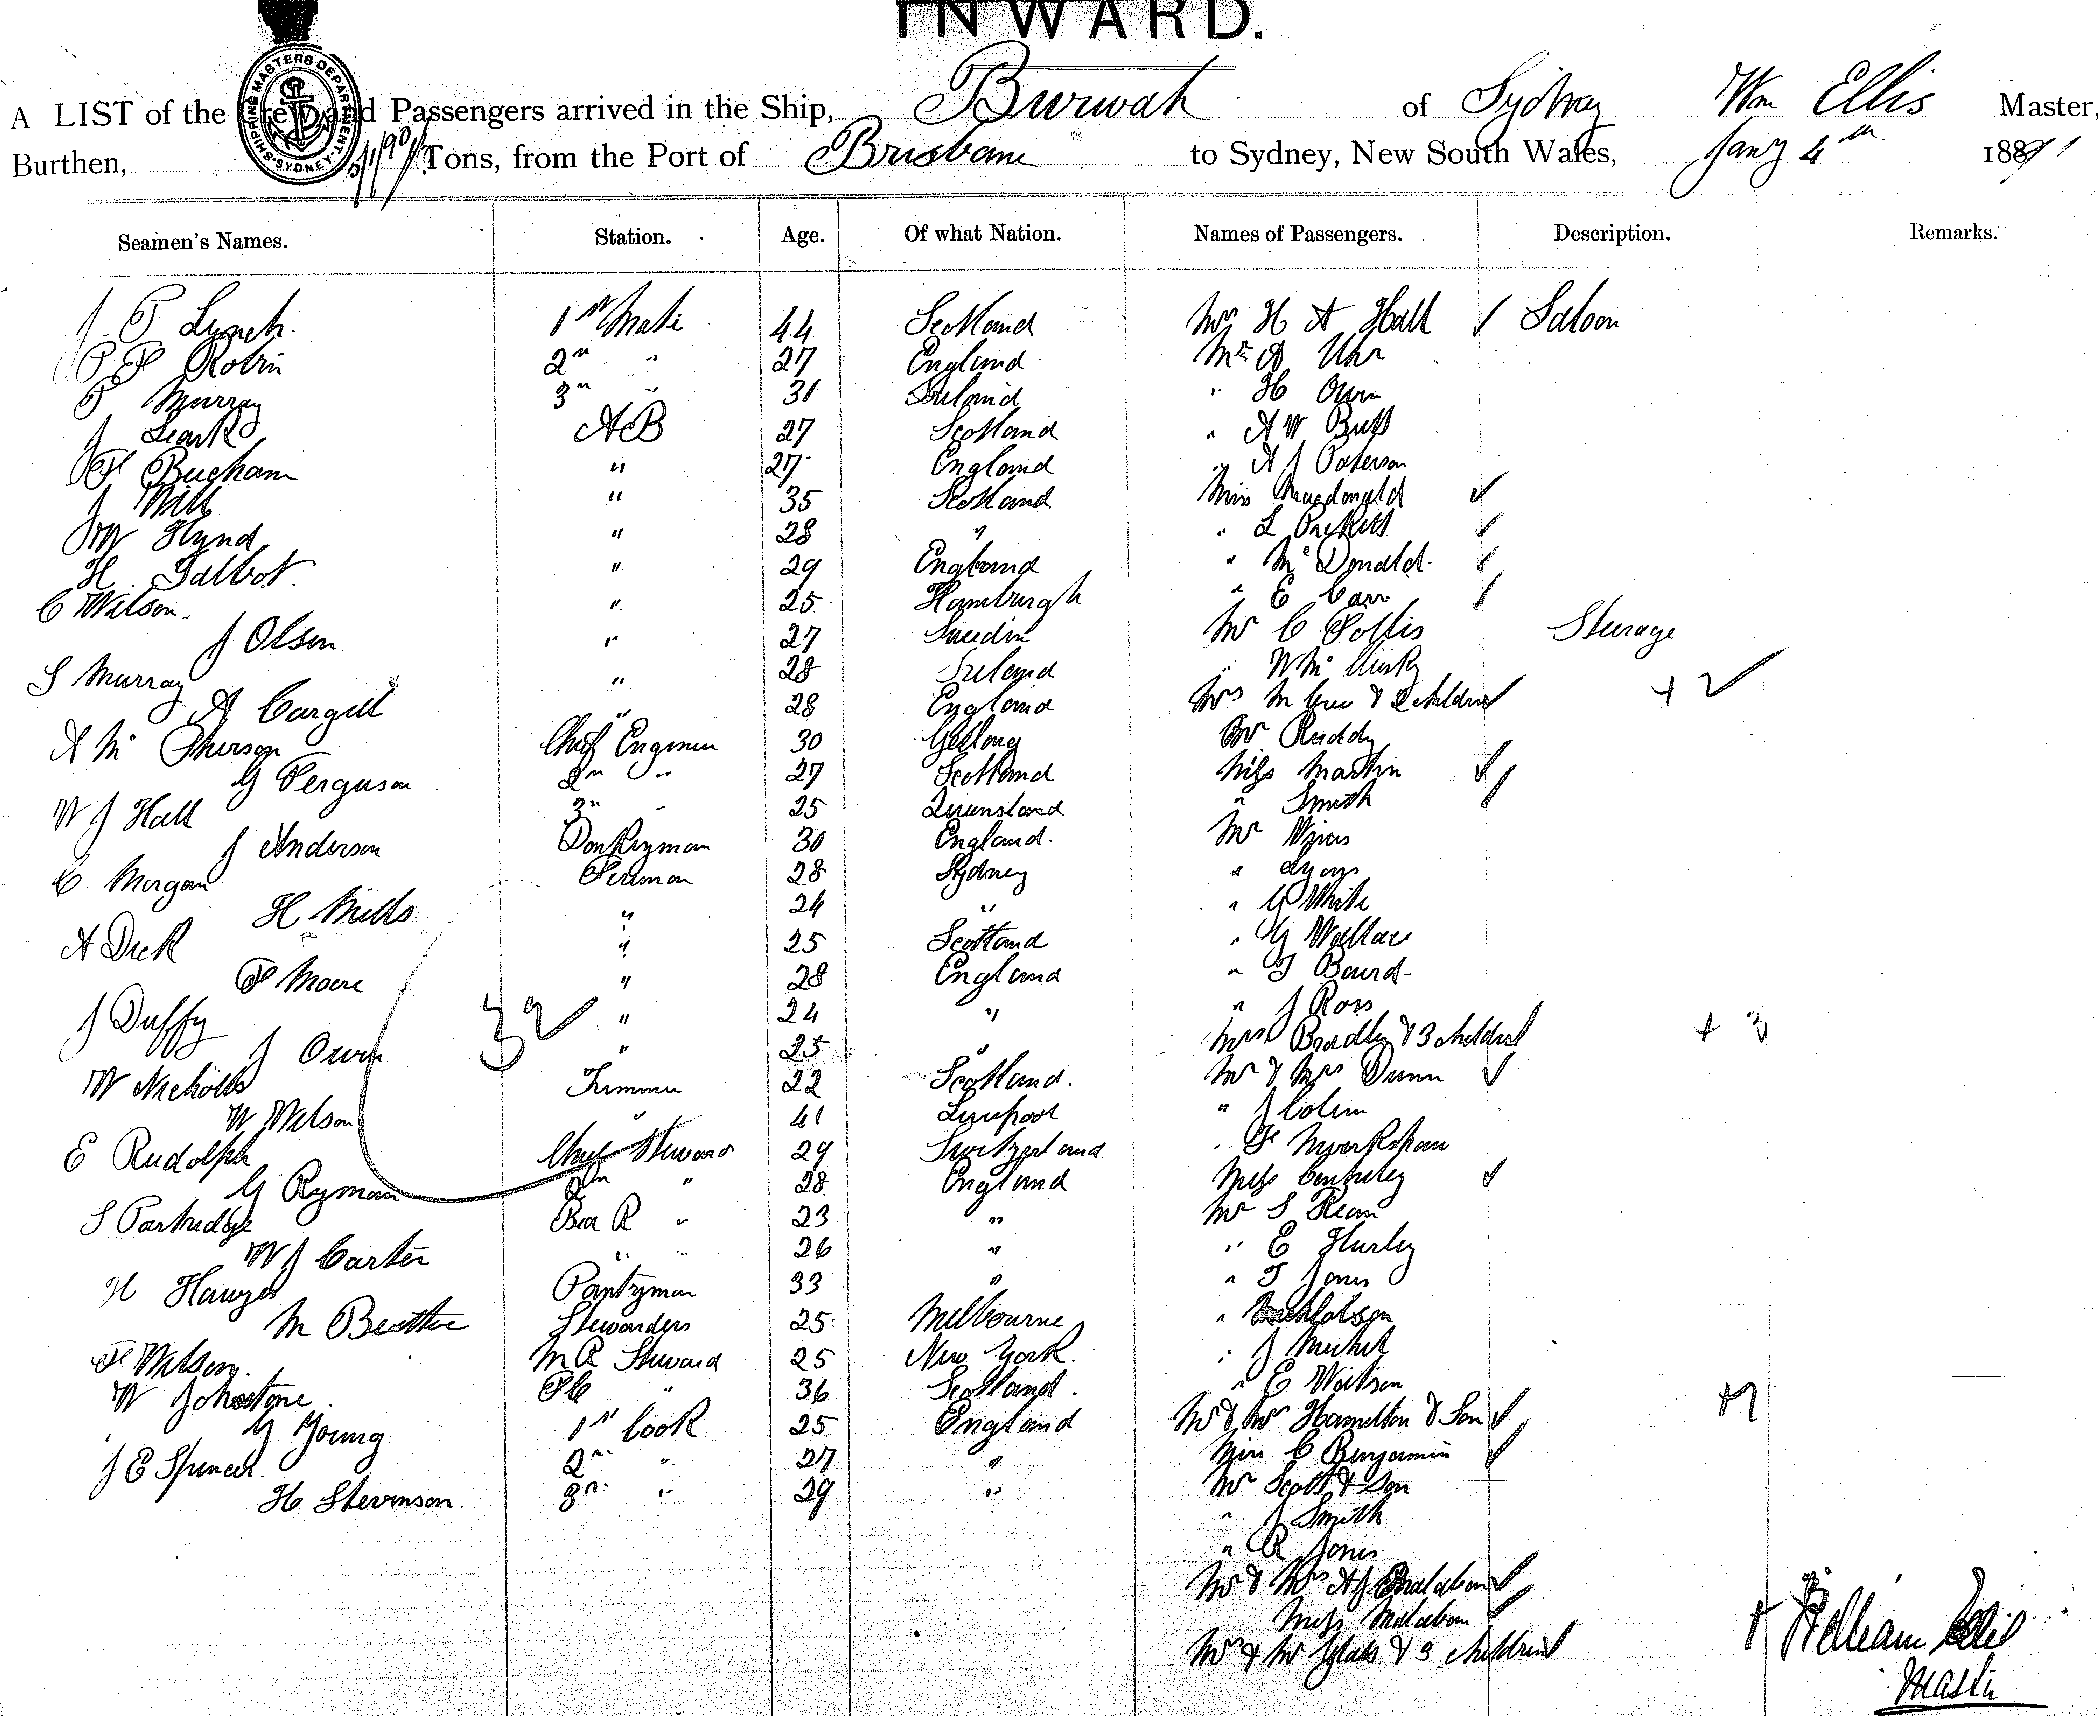 INWARD.
A LIST of the Crew and Passengers arrived in the Ship, Burwah of Sydney Wm Ellis Master,
Burthen, Tons, from the Port of Brisbane to Sydney, New South Wales, Jany 4th 1891
SHIPPING MASTERS DEPARTMENT SYDNEY
Seamen's Names. Station. Age. Of what Nation. Names of Passengers. Description. Remarks.
J P Lynch. 1st Mate 44 Scotland Mrs H A Hall Saloon
P F Robin 2nd " 27 England Mr A Uhr
P Murray 3rd " 31 Ireland " H Own
J Leask AB 27 Scotland " A W Butt
F Bucham " 27 England " A J Paterson
J Mill " 35 Scotland Miss Macdonald
J W Hynd " 28 " " L
H Talbot " 29 England " McDonald
C Wilson. " 25 Hamburgh " E Carr
J Olson " 27 Sweden Mr C Sollis Sturage
S Murray " 28 Ireland " W Mc
A Cargill " 28 England Mrs M & 2 children + 2
A Mc Pherson Chief Engineer 30 Geelong Mr Ruddy
G Ferguson 2nd " 27 Scotland Miss Martin
W J Hall 3rd " 25 Queensland " Smith
J Anderson Donkeyman 30 England. Mr
C Morgan Fireman 28 Sydney " Lyons
H Mills " 24 " " G White
A Dick " 25 Scotland " G Wallace
F Moore " 28 England " J Baird
J Duffy 32 " 24 " " J Ross
J Owen " 25 " Mrs Bradley & 3 children + 3
W Nicholls Trimmer 22 Scotland. Mr & Mrs Dunn
W Wilson " 41 Liverpool " J Colin
E Rudolph Chief Steward 29 Switzerland " F
G Ryman 2nd " 28 England Miss
S Partridge Bar R " 23 " Mr S Kean
W J Carter " " 26 " " E Hurley
H Hawyes Pantryman 33 " " T Jones
M Beattie Stewardess 25 Melbourne " Nicholson
F Wilson. M R Steward 25 New York " J Michel
W Johnstone FC " 36 Scotland. " E Watson
G Young 1st Cook 25 England Mr & Mrs Hamilton & Son
J E Spencer 2nd " 27 " Miss C Benjamin
H Stevenson 3rd " 29 " Mr Scott & Son
" J Smith
" R Jones
Mr & Mrs A J
Miss Malabon
Mr & Mrs & 3 children
William Ellis
Master